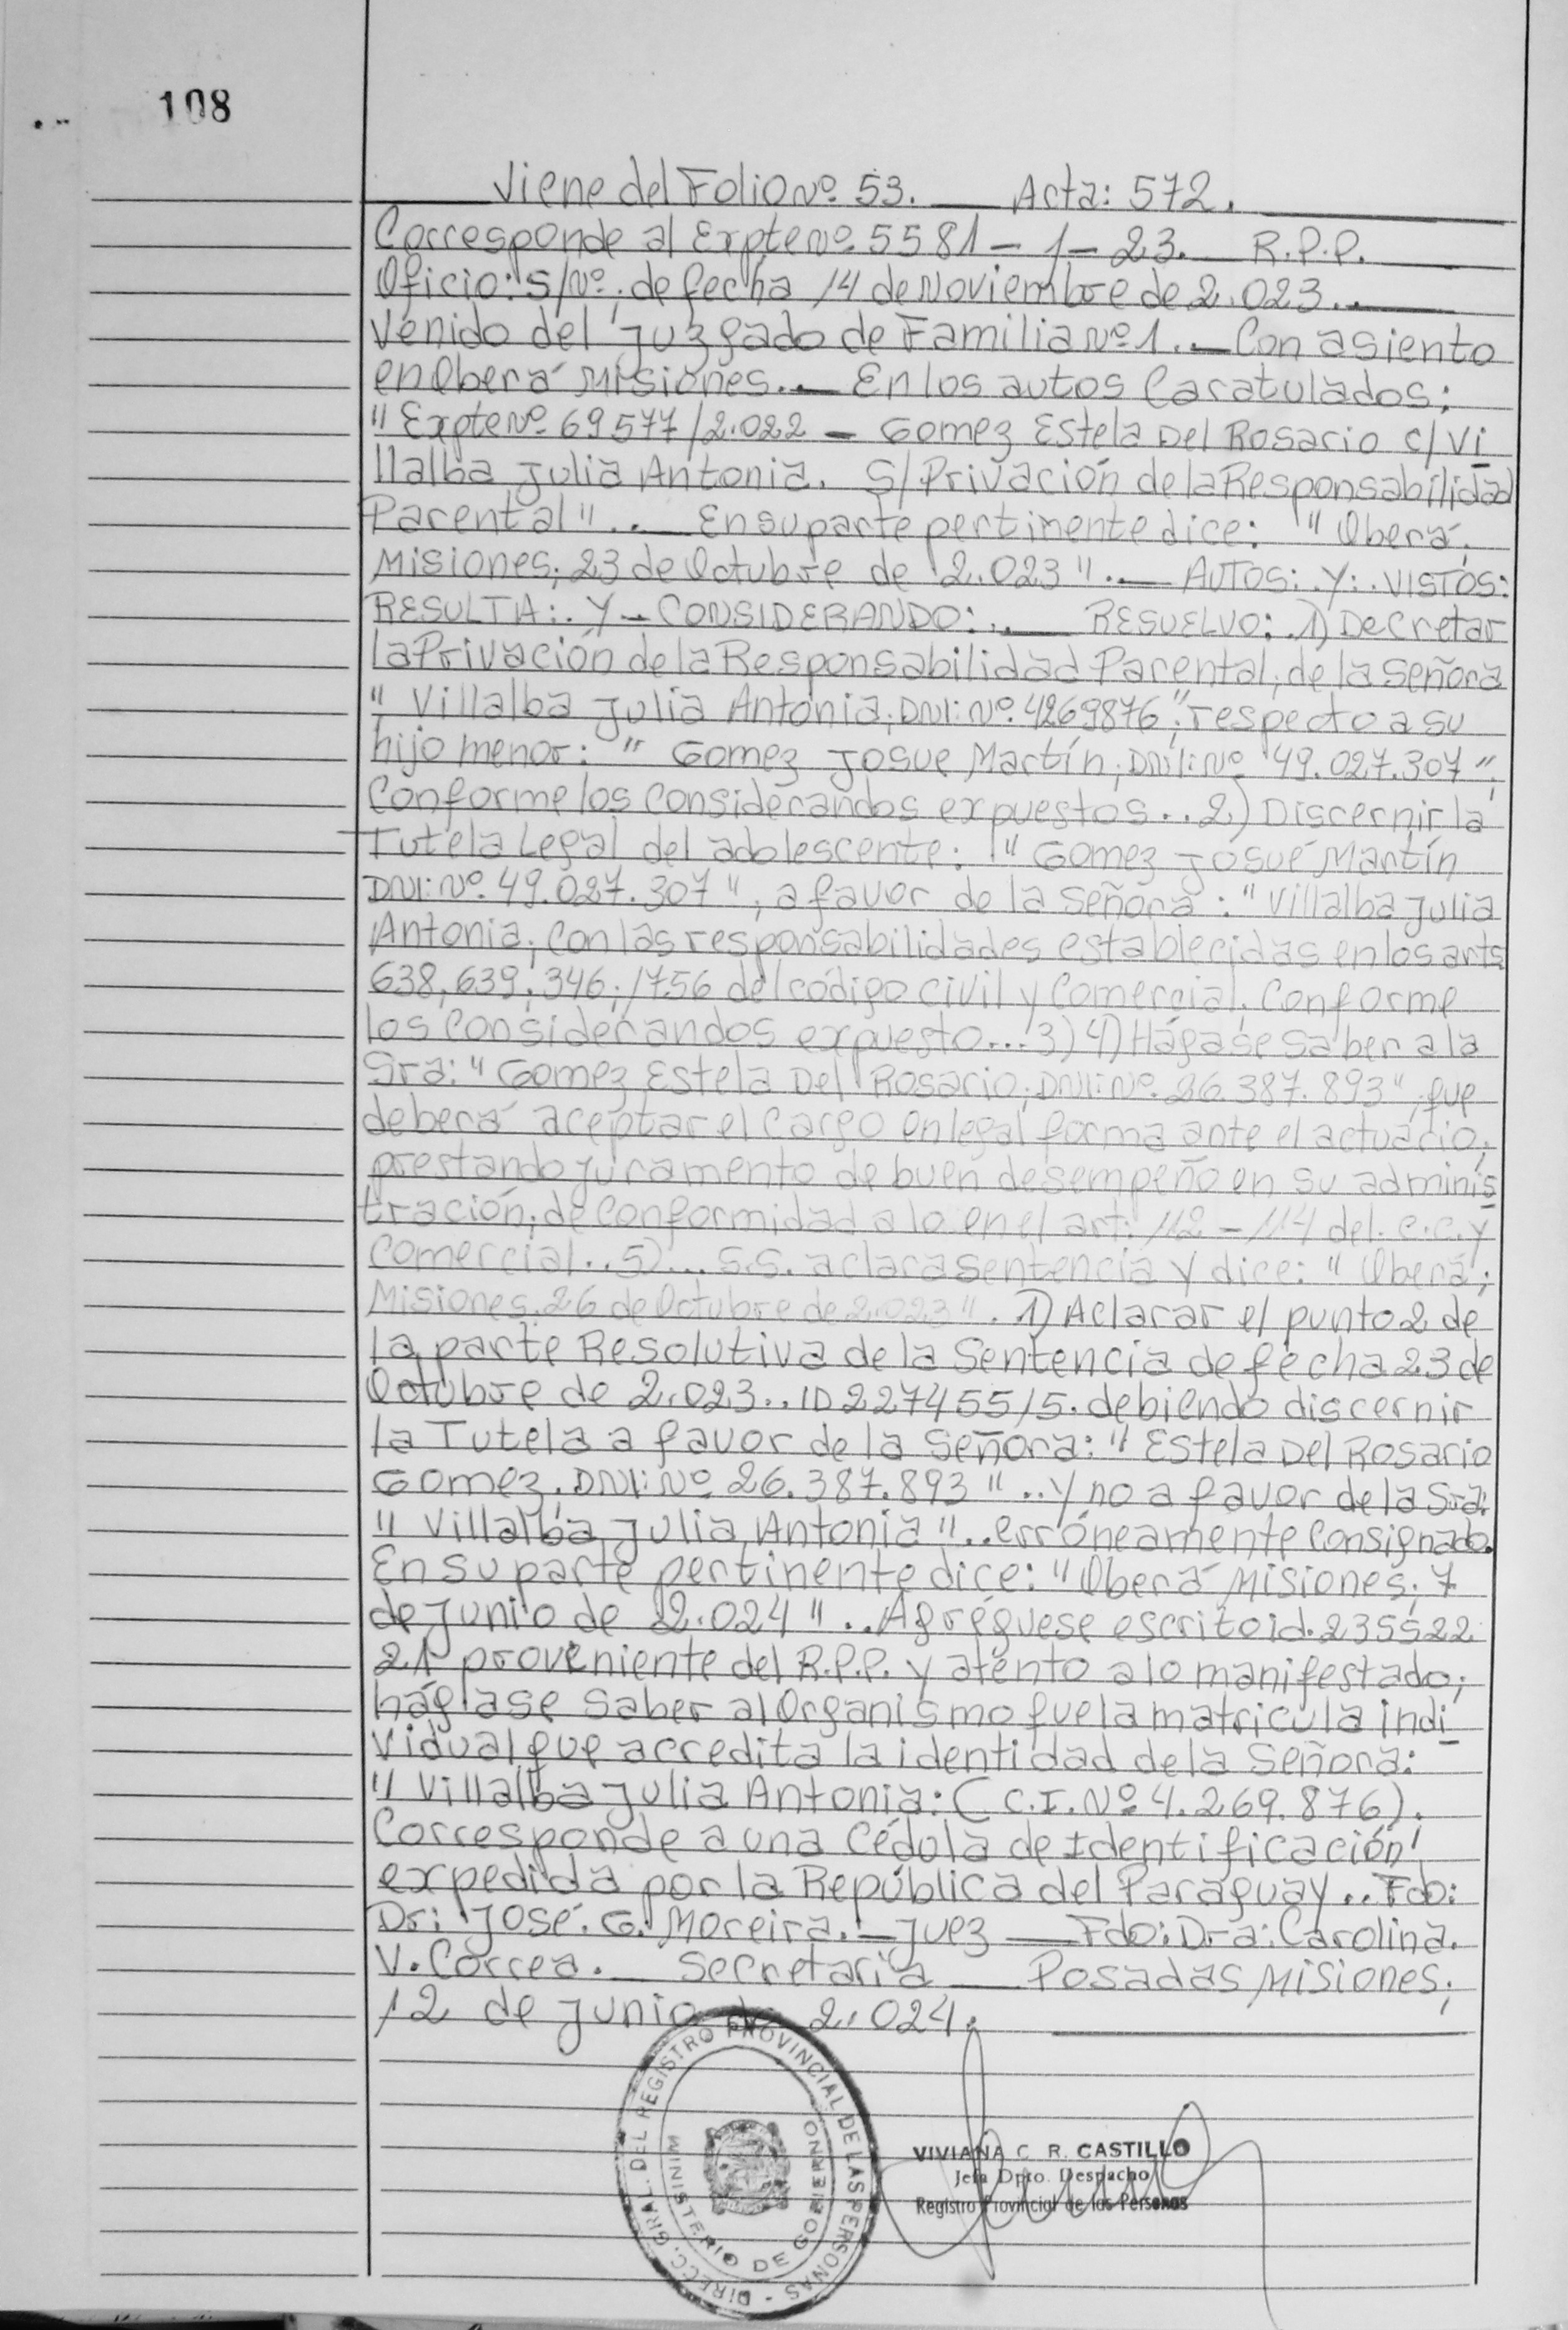 108
Viene del Folio Nº 53. __ Acta: 572.
Corresponde al Expte Nº 5581 - 1 - 23. __ R.P.P.
Oficio: S/Nº; de fecha 14 de Noviembre de 2.023..
Venido del Juzgado de Familia Nº 1.. __ Con asiento
en Oberá Misiones.. __ En los autos Caratulados:
"Expte Nº 69577/2.022 - Gomez Estela Del Rosario c/ Vi
llalba Julia Antonia. S/ Privación de la Responsabilidad
Parental".. __ En su parte pertinente dice: "Oberá;
Misiones; 23 de Octubre de 2.023".. __ AUTOS: Y: VISTOS:
RESULTA: Y - CONSIDERANDO:.. __ RESUELVO: 1) Decretar
la Privación de la Responsabilidad Parental; de la señora
"Villalba Julia Antonia; DNI: Nº 4269876"; respecto a su
hijo menor: "Gomez Josue Martín; DNI: Nº 49.027.307";
Conforme los considerandos expuestos.. 2) Discernir la
Tutela Legal del adolescente: "Gomez Josué Martín
DNI: Nº 49.027.307", a favor de la señora: "Villalba Julia
Antonia; con las responsabilidades establecidas en los arts
638, 639; 346; 1756 del código civil y Comercial. Conforme
los considerandos expuesto... 3) 4) Hágase saber a la
Sra: "Gomez Estela Del Rosario; DNI: Nº 26.387.893"; que
deberá aceptar el cargo en legal forma ante el actuario;
prestando juramento de buen desempeño en su adminis
tración; de conformidad a lo en el art: 112 - 114 del. C.C. y
Comercial.. 5)... S.S. aclara sentencia y dice: "Oberá;
Misiones. 26 de Octubre de 2.023". 1) Aclarar el punto 2 de
la parte Resolutiva de la Sentencia de fecha 23 de
Octubre de 2.023.. ID 22745515. debiendo discernir
la Tutela a favor de la señora: "Estela Del Rosario
Gomez. DNI: Nº 26.387.893".. y no a favor de la Sra:
"Villalba Julia Antonia".. erróneamente consignado.
En su parte pertinente dice: "Oberá Misiones; 7
de Junio de 2.024".. Agréguese escrito id. 235522
21 proveniente del R.P.P. y atento a lo manifestado;
hágase saber al Organismo que la matricula indi
vidual que acredita la identidad de la señora:
"Villalba Julia Antonia: (C.I. Nº 4.269.876).
Corresponde a una Cédula de Identificación
expedida por la República del Paraguay.. Fdo:
Dr: José. G. Moreira. - Juez __ Fdo: Dra: Carolina.
V. Correa. __ Secretaria __ Posadas Misiones;
12 de junio de 2.024.
DIRECC. GRAL. DEL REGISTRO PROVINCIAL DE LAS PERSONAS -
MINISTERIO DE GOBIERNO
VIVIANA C. R. CASTILLO
Jefa Dpto. Despacho
Registro Provincial de las Personas